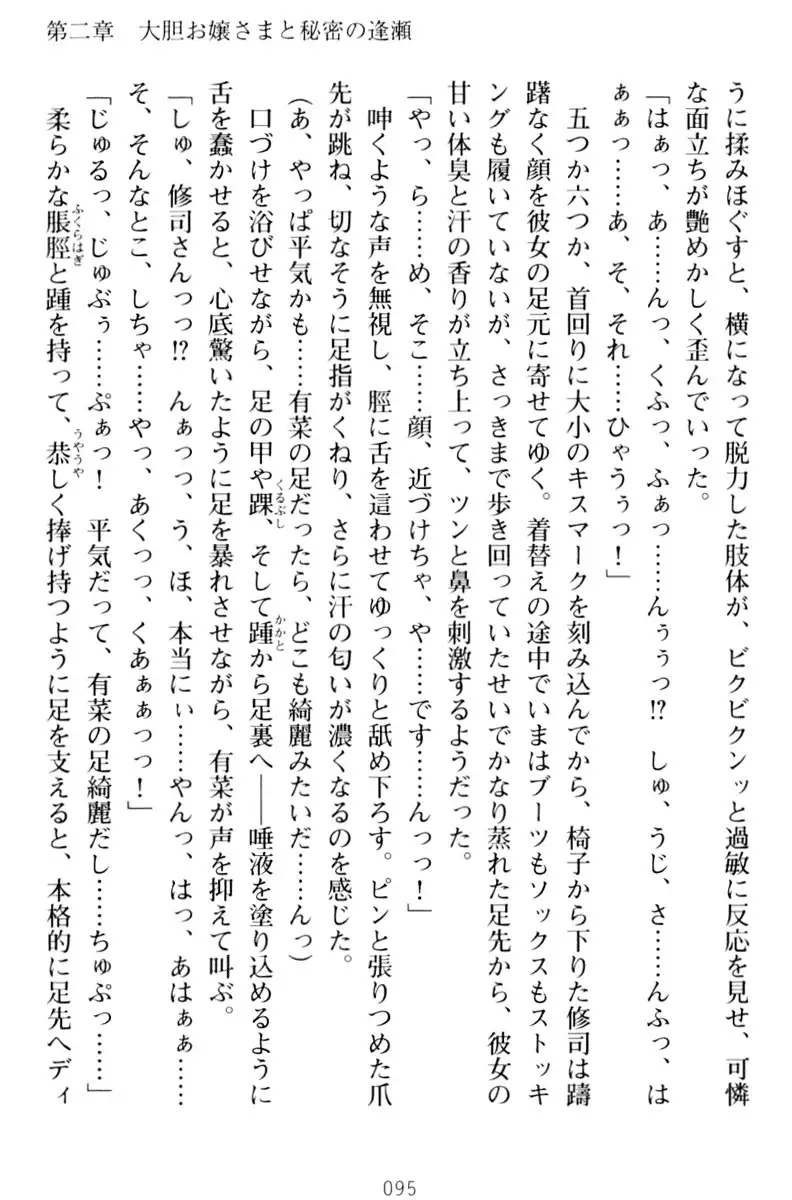 第二章　大胆お嬢さまと秘密の逢瀬
うに揉みほぐすと、横になって脱力した肢体が、ビクビクンッと過敏に反応を見せ、可憐
な面立ちが艶めかしく歪んでいった。
「はぁっ、あ……んっ、くふっ、ふぁっ……んぅぅっ!?　しゅ、うじ、さ……んふっ、は
ぁぁっ……あ、そ、それ……ひゃうぅっ！」
　五つか六つか、首回りに大小のキスマークを刻み込んでから、椅子から下りた修司は躊
躇なく顔を彼女の足元に寄せてゆく。着替えの途中でいまはブーツもソックスもストッキ
ングも履いていないが、さっきまで歩き回っていたせいでかなり蒸れた足先から、彼女の
甘い体臭と汗の香りが立ち上って、ツンと鼻を刺激するようだった。
「やっ、ら……め、そこ……顔、近づけちゃ、や……です……んっっ！」
　呻くような声を無視し、脛に舌を這わせてゆっくりと舐め下ろす。ピンと張りつめた爪
先が跳ね、切なそうに足指がくねり、さらに汗の匂いが濃くなるのを感じた。
（あ、やっぱ平気かも……有菜の足だったら、どこも綺麗みたいだ……んっ）
　口づけを浴びせながら、足の甲や踝、そして踵から足裏へ――唾液を塗り込めるように
くるぶし
かかと
舌を蠢かせると、心底驚いたように足を暴れさせながら、有菜が声を抑えて叫ぶ。
「しゅ、修司さんっっ!?　んぁっっ、う、ほ、本当にぃ……やんっ、はっ、あはぁぁ……
そ、そんなとこ、しちゃ……やっ、あくっっ、くあぁぁっっ！」
「じゅるっ、じゅぶぅ……ぷぁっ！　平気だって、有菜の足綺麗だし……ちゅぷっ……」
　柔らかな脹脛と踵を持って、恭しく捧げ持つように足を支えると、本格的に足先へディ
ふくらはぎ
うやうや
095